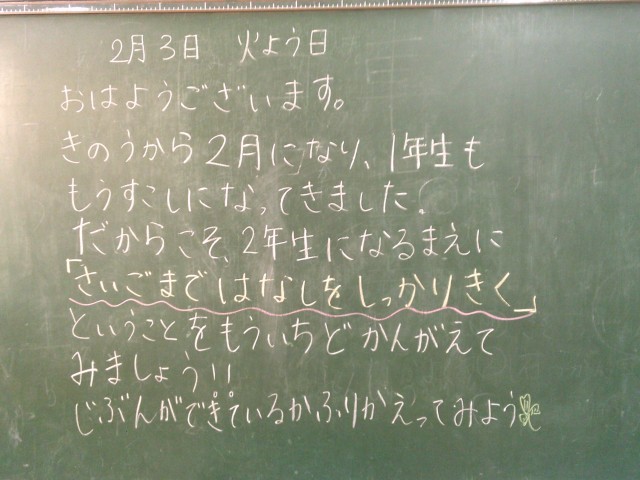 2月3日 火よう日
おはようございます。
きのうから2月になり、1年生も
もうすこしになってきました。
だからこそ、2年生になるまえに
「さいごまではなしをしっかりきく」
ということをもういちどかんがえて
みましょう!!
じぶんができているかふりかえってみよう